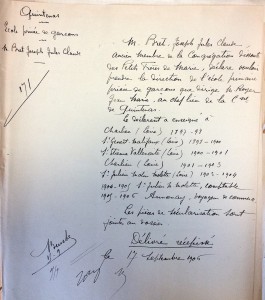 Quintenas
École privée de garçons
M. Bret Joseph Jules Claude
M. Bret, Joseph Jules Claude,
ancien membre de la Congrégation dissoute
des Petits Frères de Marie, déclare vouloir
prendre la direction de l'école primaire
privée de garçons que dirige M. Royer
Jean Marie, au chef lieu de la Cne
de Quintenas.
Le déclarant a enseigné à
Charlieu (Loire) 1897-98
St Genest Malifaux (Loire) 1898-1900
1900-1901
Charlieu (Loire) 1901-1902
St Julien Molin Molette (Loire) 1902-1904
1904-1905 St Julien M. Molette, comptable
1905-1906 Annonay, voyageur de commerce
Les pièces de sécularisation sont
jointes au dossier
Délivré récépissé
le 17 Septembre 1906